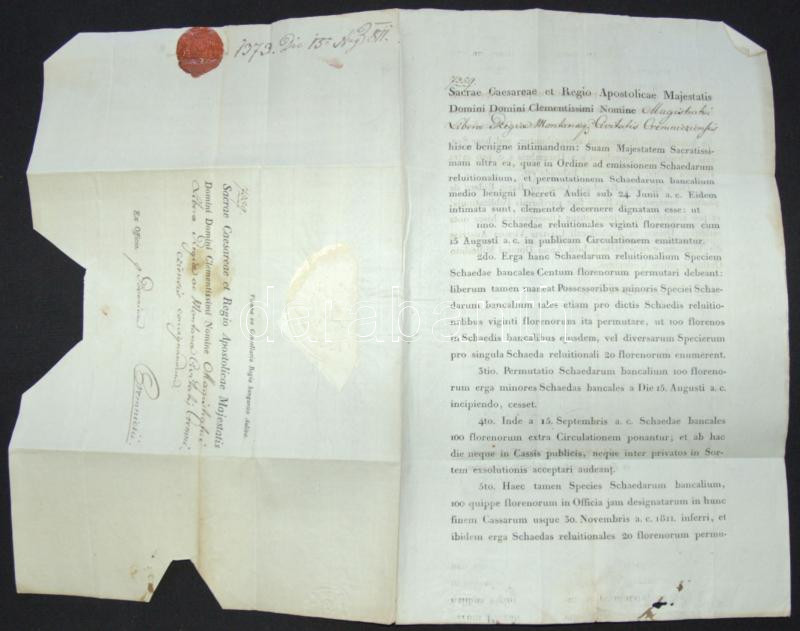 1373. Die 15
7359
Sacrae Caesareae et Regio Apostolicae Majestatis
Domini Domini Clementissimi Nomine Magistratui
Liberae Regiae Montanaeq. Civitatis Cremniciensis
hisce benigne intimandum: Suam Majestatem Sacratissi-
mam ultra ea, quae in Ordine ad emissionem Schaedarum
reluitionalium, et permutationem Schaedarum bancalium
medio benigni Decreti Aulici sub 24 Junii a. c. Eidem
intimata sunt, clementer decernere dignatam esse: ut
1mo. Schaedae reluitionales viginti florenorum cum
15 Augusti a. c. in publicam Circulationem emittantur.
2do. Erga hanc Schaedarum reluitionalium Speciem
Schaedae bancales Centum florenorum permutari debeant:
liberum tamen maneat Possessoribus minoris Speciei Schae-
darum bancalium tales etiam pro dictis Schaedis reluitio-
nalibus viginti florenorum ita permutare, ut 100 florenos
in Schaedis bancalibus ejusdem, vel diversarum Specierum
pro singula Schaeda reluitionali 20 florenorum enumerent.
3tio. Permutatio Schaedarum bancalium 100 floreno-
rum erga minores Schaedas bancales a Die 15. Augusti a. c.
incipiendo, cesset.
4to. Inde a 15. Septembris a. c. Schaedae bancales
100 florenorum extra Circulationem ponantur; et ab hac
die neque in Cassis publicis, neque inter privatos in Sor-
tem exsolutionis acceptari audeant.
5to. Haec tamen Species Schaedarum bancalium,
100 quippe florenorum in Officia jam designatarum in hunc
finem Cassarum usque 30. Novembris a. c. 1811. inferri, et
ibidem erga Schaedas reluitionales 20 florenorum permu-
Regia hungarica Aulica.
7359
Sacrae Caesareae et Regio Apostolicae Majestatis
Domini Domini Clementissimi Nomine Magistratui
Liberae Regiae ac Montanae Civitatis Cremni-
ciensis consignandum
Ex Offo.
Cremnicii
darabanth